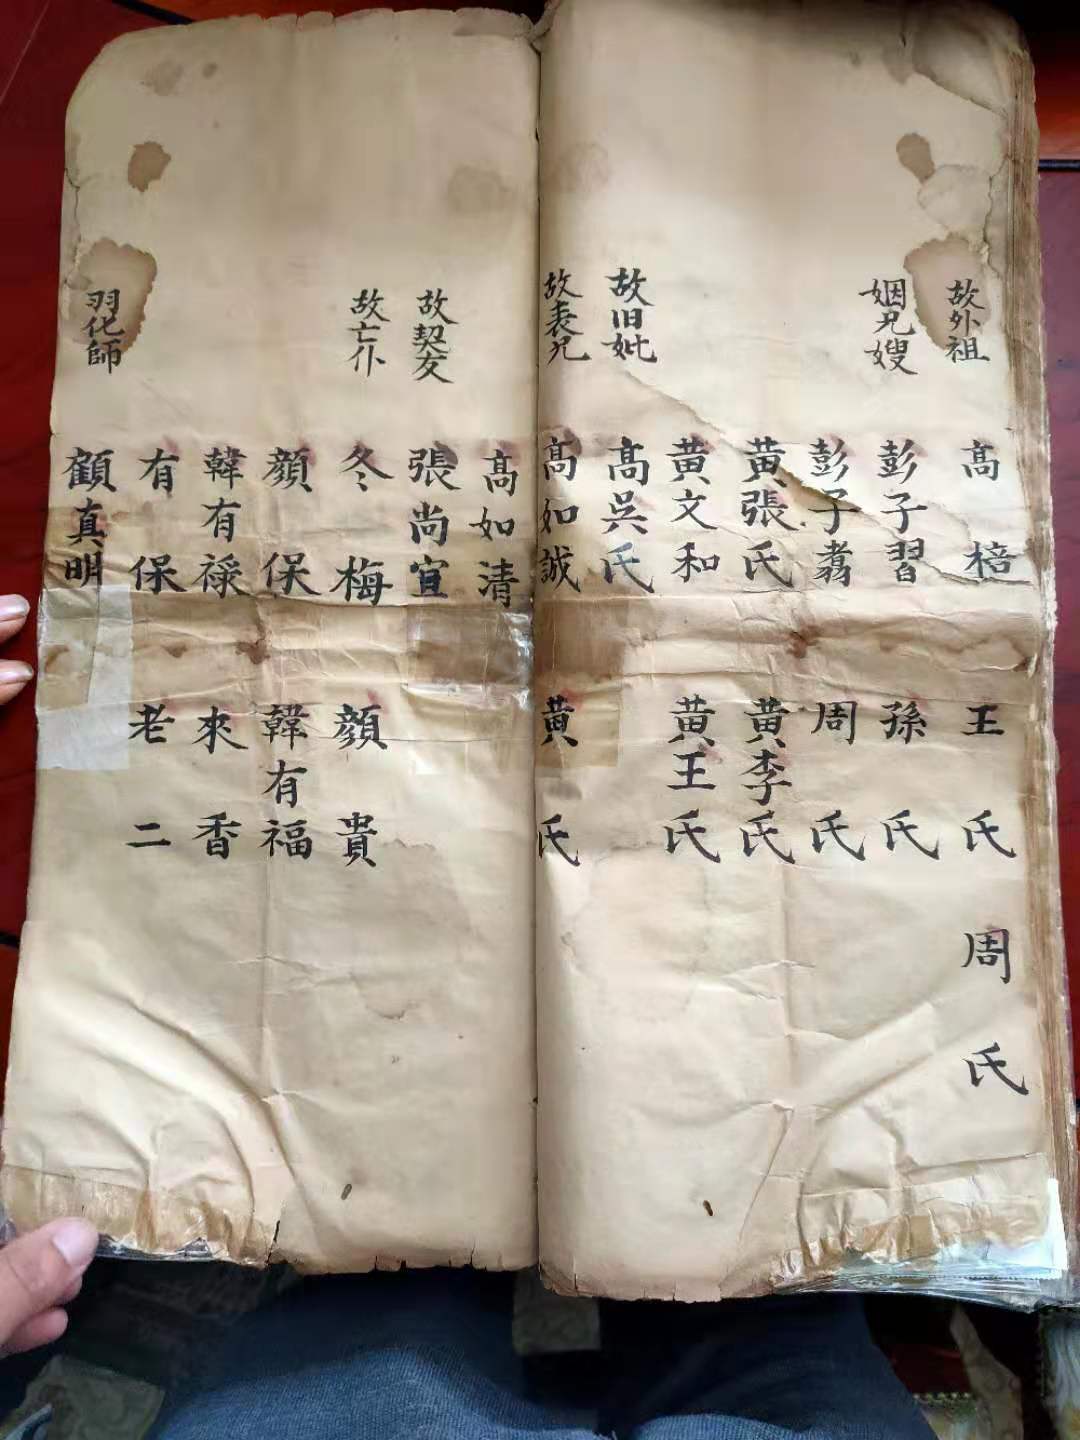 故外祖 高棓 王氏 周氏
姻兄嫂 彭子習 孫氏
彭子翥 周氏
黄張氏 黄李氏
黄文和 黄王氏
故旧妣 高吳氏
故表兄 高如誠 黄氏
高如清
故契友 張尚宜
故亡仆 冬梅 顏貴
顏保 韓有福
韓有祿 來香
有保 老二
羽化師 顧真明